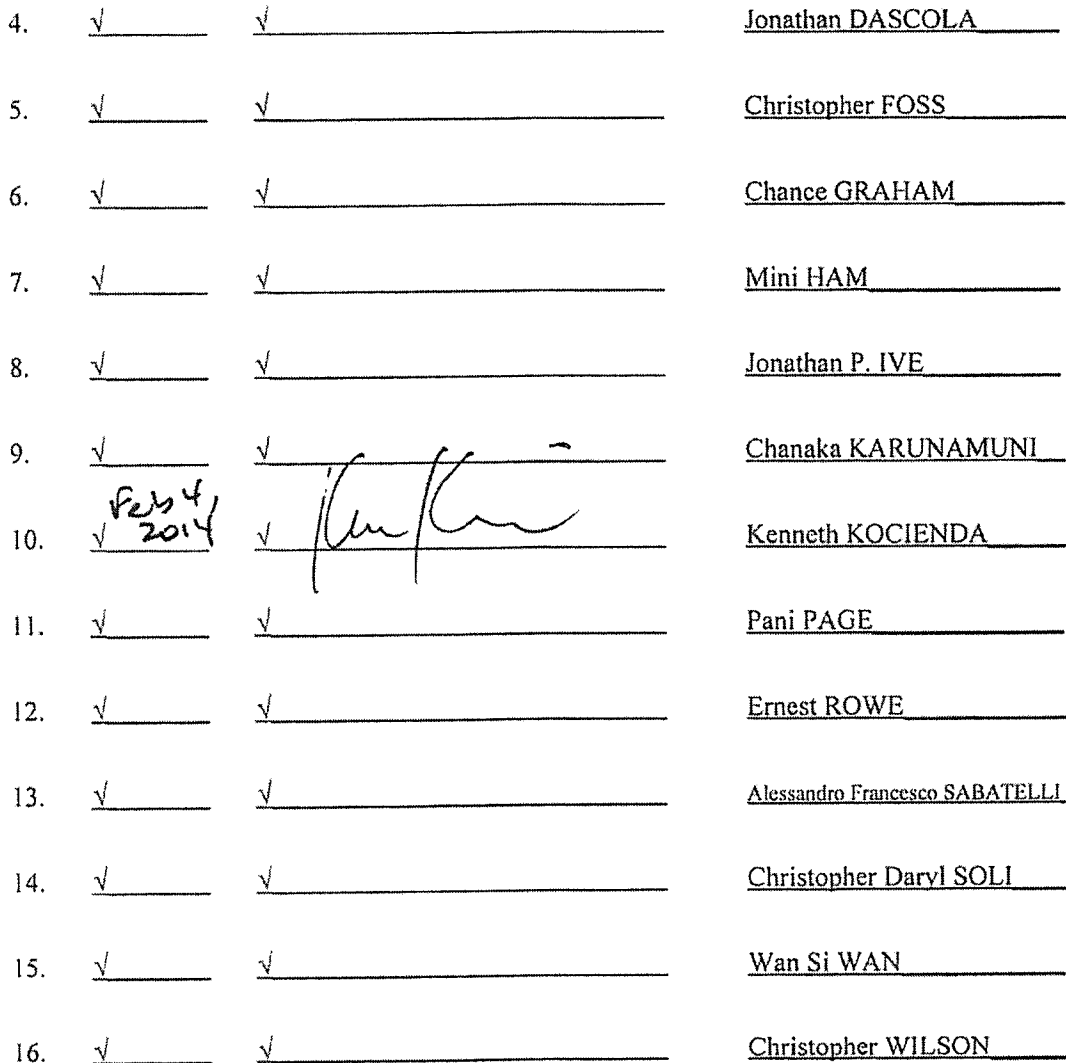 4. √ √ Jonathan DASCOLA
5. √ √ Christopher FOSS
6. √ √ Chance GRAHAM
7. √ √ Mini HAM
8. √ √ Jonathan P. IVE
9. √ √ Chanaka KARUNAMUNI
Feb 4,
10. √ 2014 √ Kenneth KOCIENDA
11. √ √ Pani PAGE
12. √ √ Ernest ROWE
13. √ √ Alessandro Francesco SABATELLI
14. √ √ Christopher Daryl SOLI
15. √ √ Wan Si WAN
16. √ √ Christopher WILSON